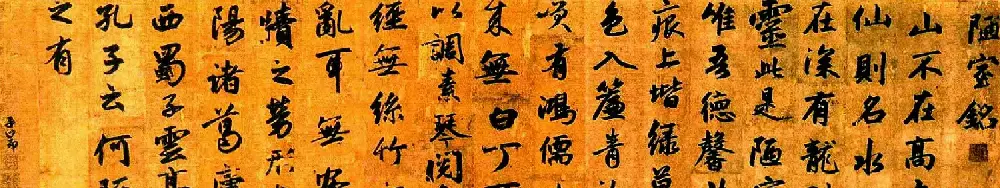 陋室銘
山不在高
仙則名水
在深有龍
靈此是陋室
唯吾德馨
痕上堦緑草
色入簾青
咲有鴻儒
來無白丁
以調素琴閱
經無絲竹
亂耳無案
牘之勞形
陽諸葛廬
西蜀子雲亭
孔子云何陋
之有
子昂